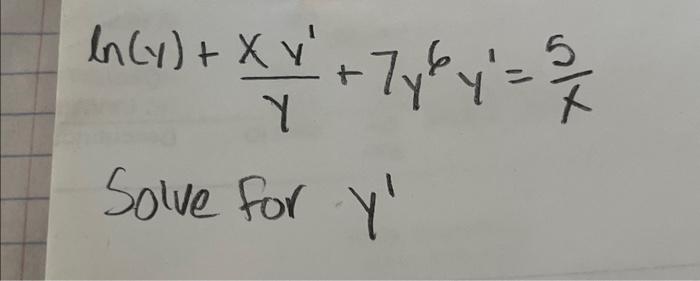 ln(y) + x y'/y + 7y⁶y' = 5/x
Solve for y'